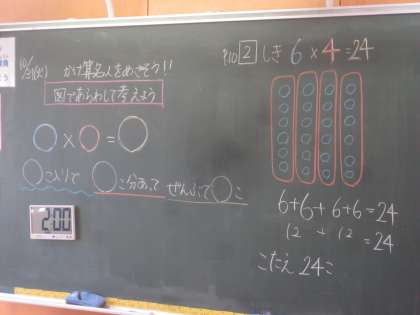 かけ算名人をめざそう!!
図であらわして考えよう
○×○=○
○こ入りで ○こ分あって ぜんぶで○こ
2:00
P10 2 しき 6×4=24
6+6+6+6=24
12+12=24
こたえ 24こ